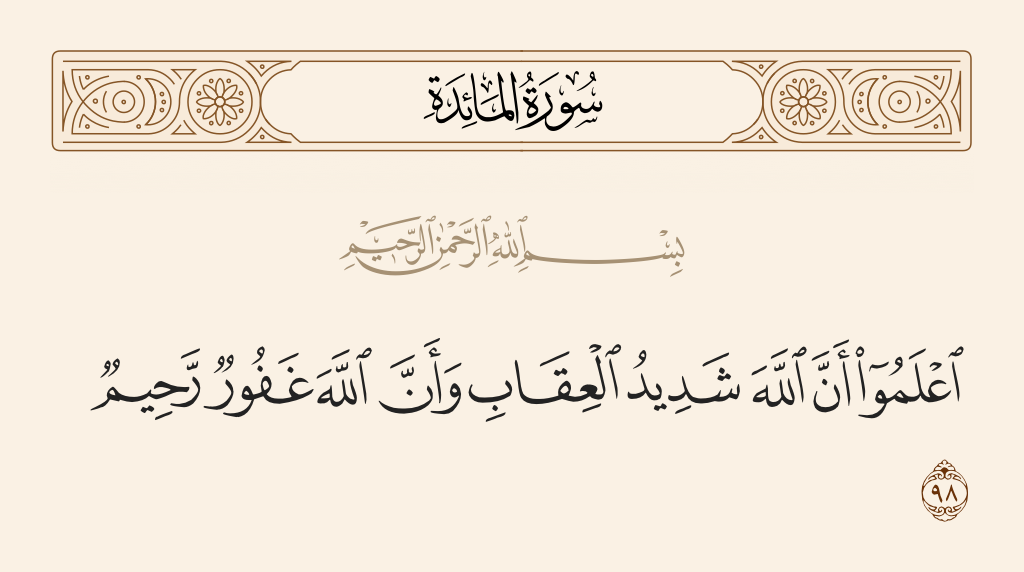 سُورَةُ المَائِدَةِ
بِسْمِ ٱللَّهِ ٱلرَّحْمَٰنِ ٱلرَّحِيمِ
ٱعْلَمُوٓا۟ أَنَّ ٱللَّهَ شَدِيدُ ٱلْعِقَابِ وَأَنَّ ٱللَّهَ غَفُورٌ رَّحِيمٌ
٩٨